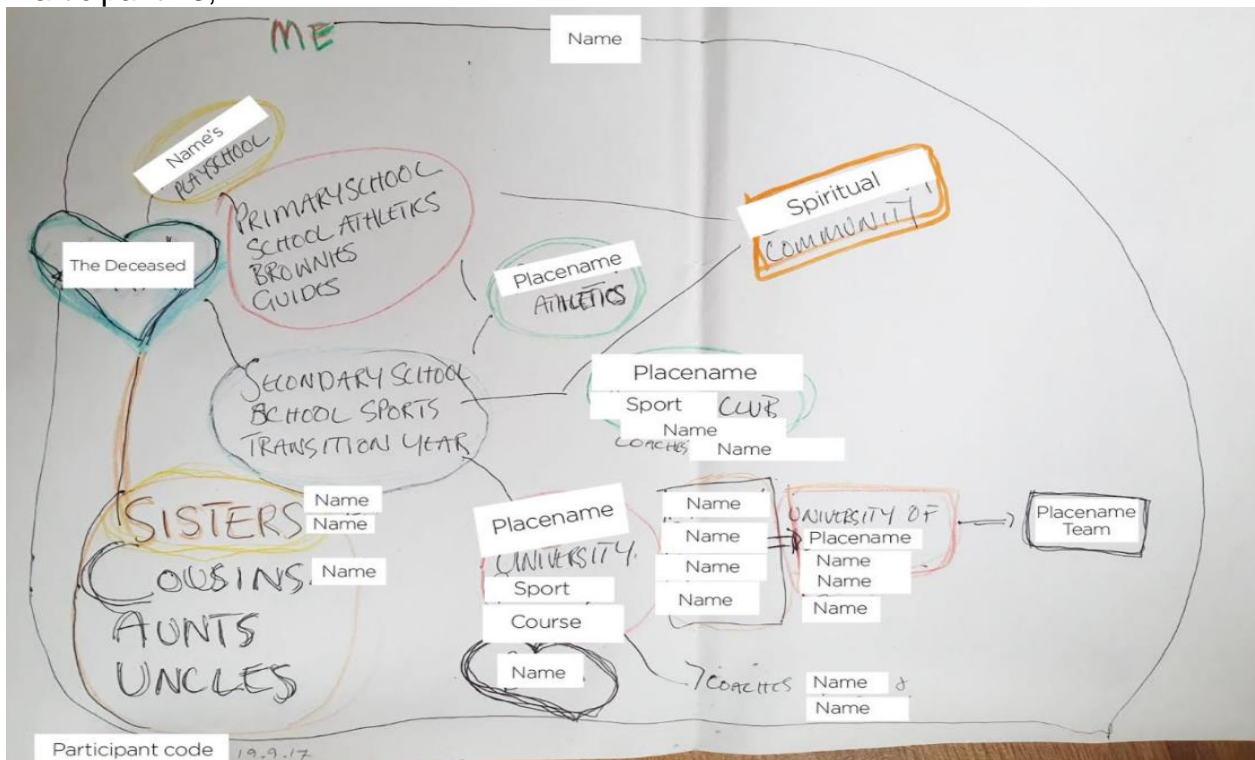 ME
Name
Name's
PLAYSCHOOL
PRIMARY SCHOOL
SCHOOL ATHLETICS
BROWNIES
GUIDES
Spiritual
COMMUNITY
The Deceased
Placename
ATHLETICS
SECONDARY SCHOOL
SCHOOL SPORTS
TRANSITION YEAR
Placename
Sport CLUB
Name
COACHES Name
SISTERS Name
Name
COUSINS Name
AUNTS
UNCLES
Placename
UNIVERSITY.
Sport
Course
Name
Name
Name
Name
Name
UNIVERSITY OF
Placename
Name
Name
Name
Placename
Team
COACHES Name &
Name
Participant code 19.9.17